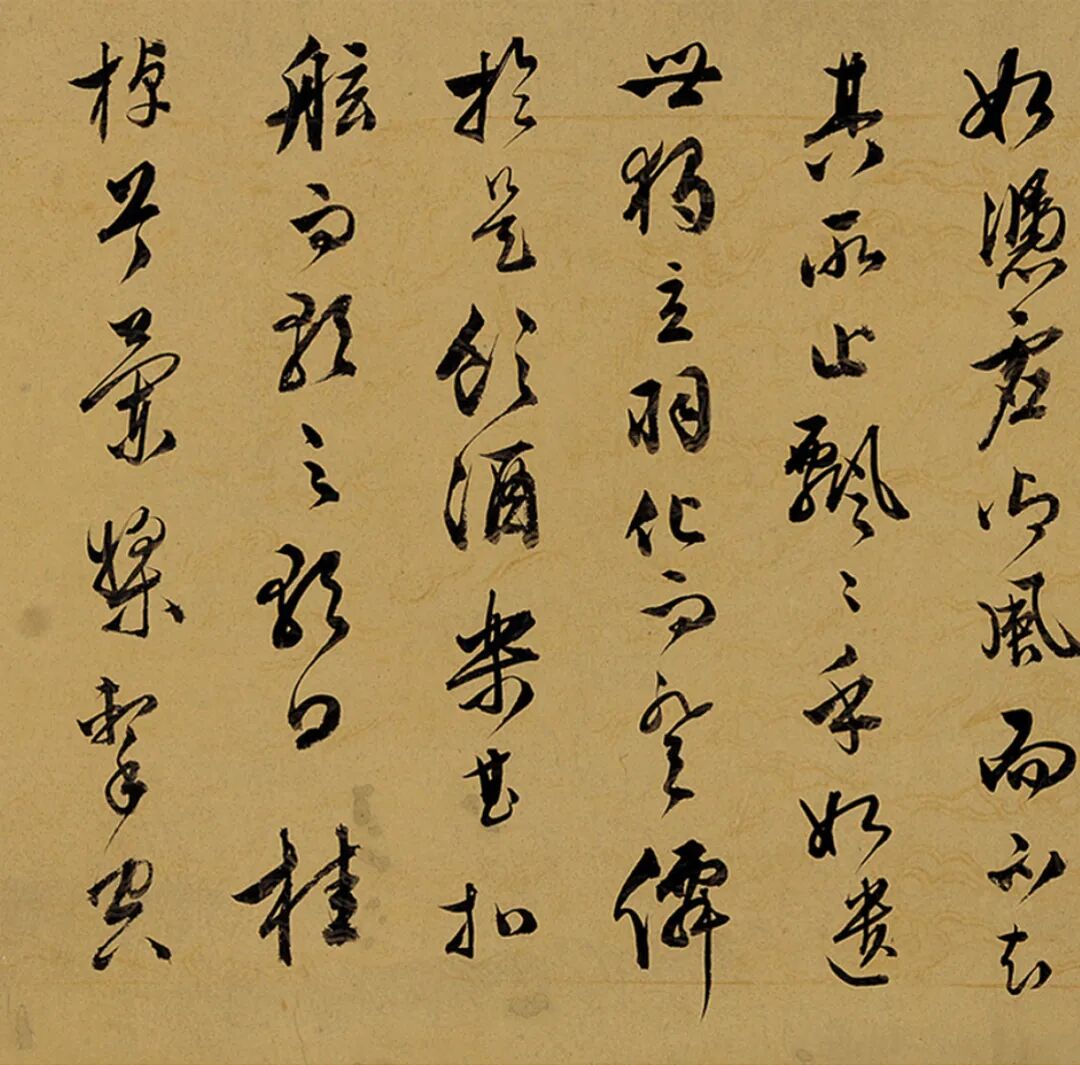 如憑虛御風而不知
其所止飄〻乎如遺
世獨立羽化而登僊
於是飲酒樂甚扣
舷而歌之歌曰桂
棹兮蘭槳擊空